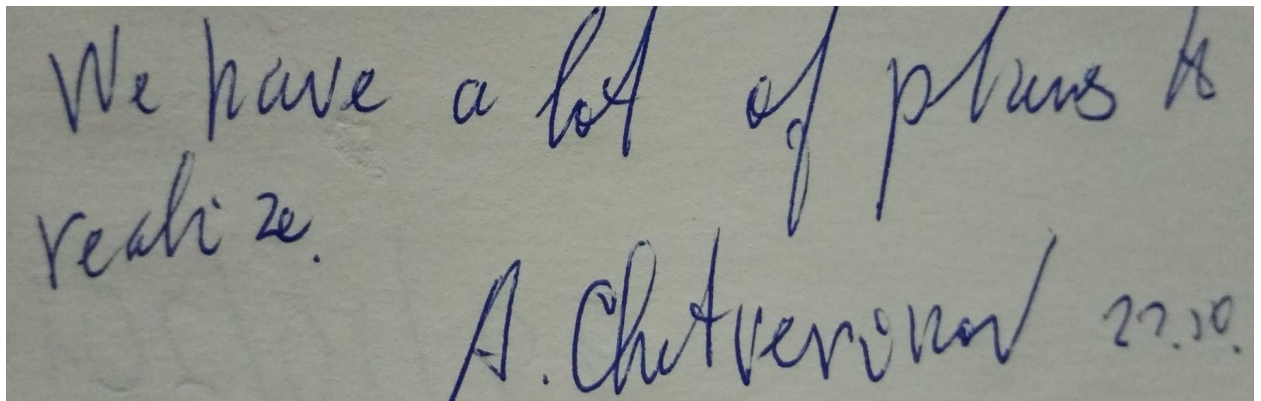 We have a lot of plans to
realize.
A. Chetverikov 22.10.